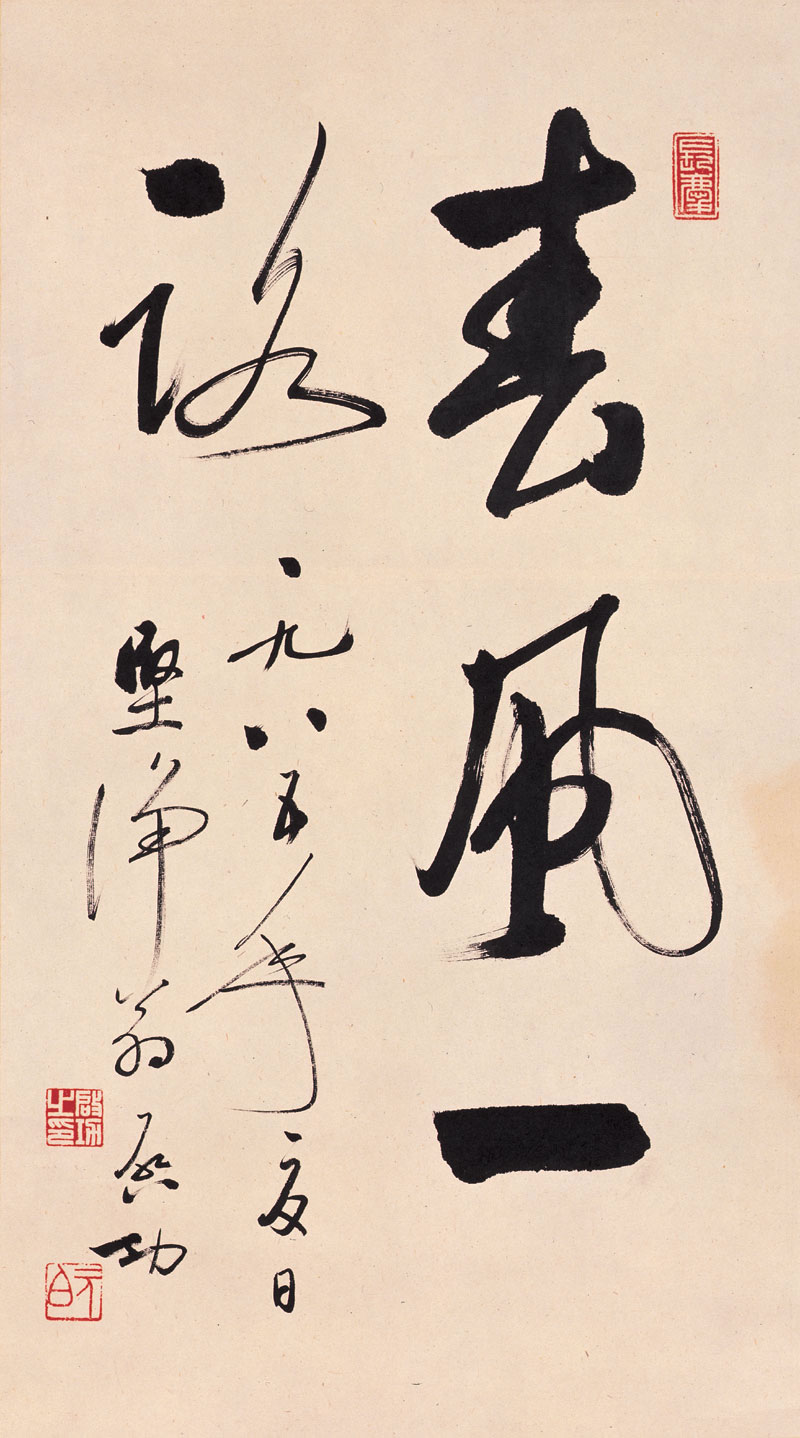 長慶
春風一
路
一九八五年夏日
堅淨翁启功
啟功之印
元白